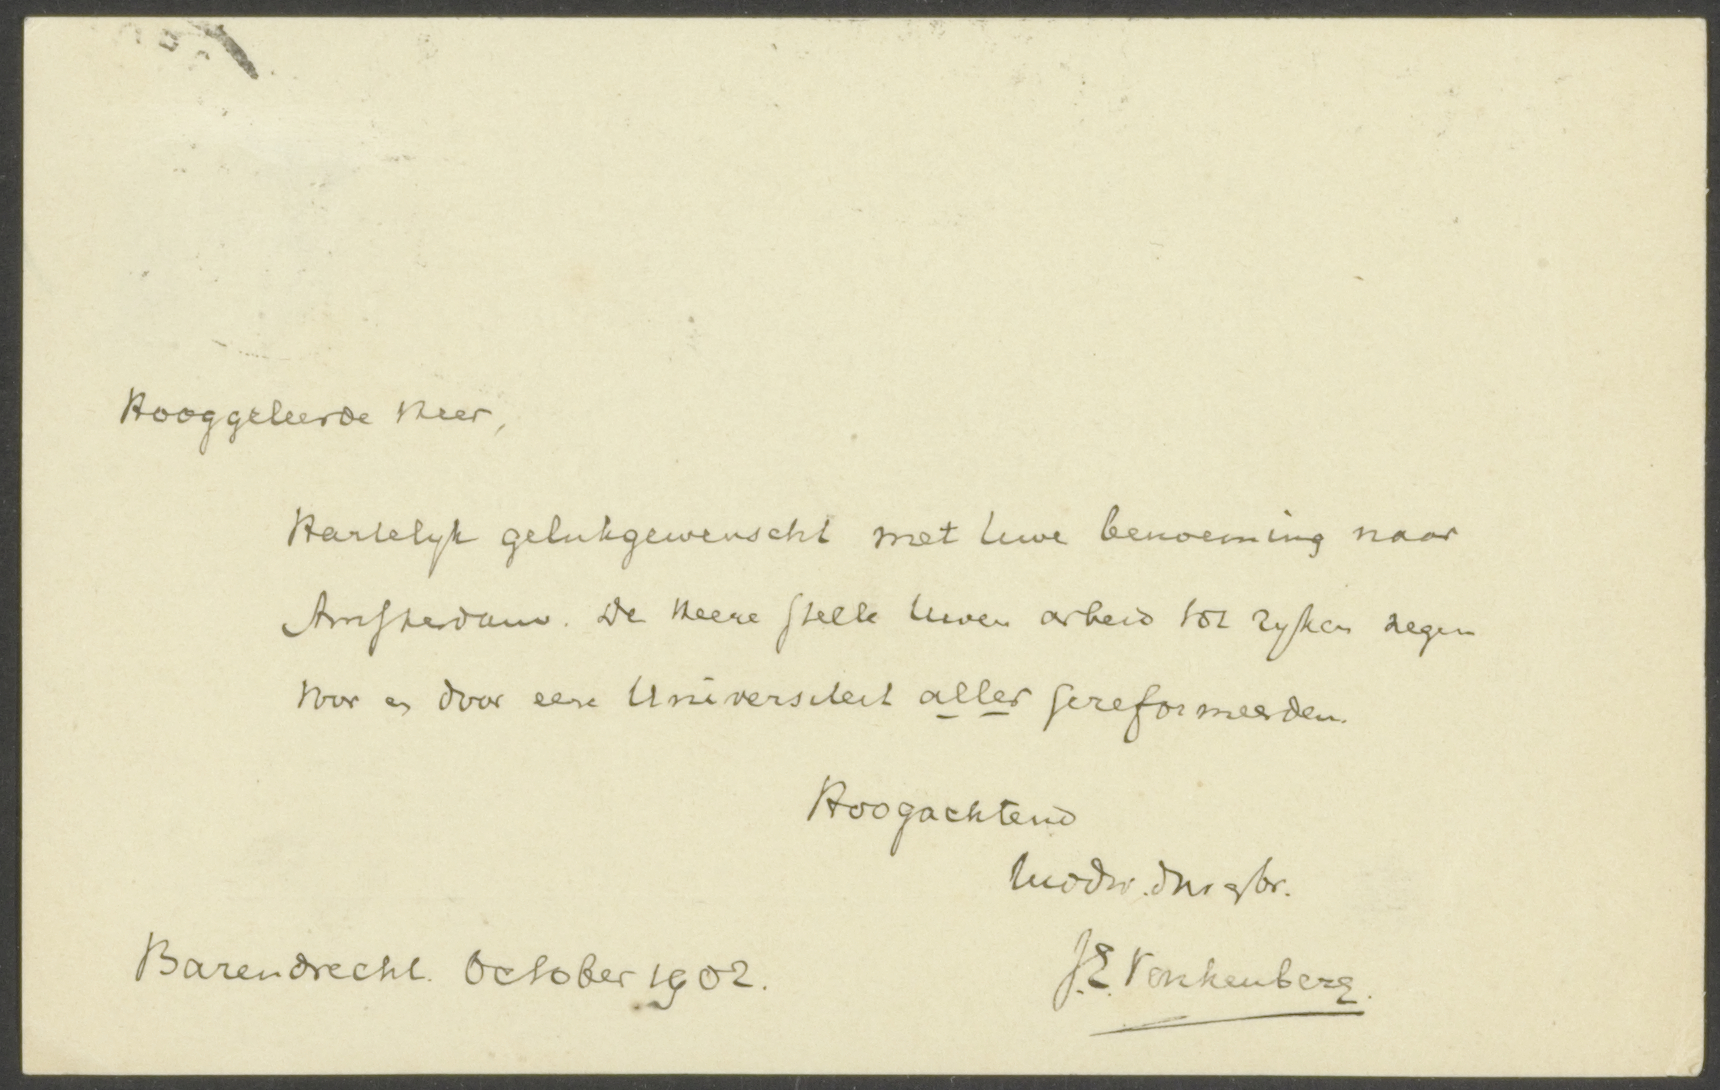 Hooggeleerde Heer,
Hartelyk gelukgewenscht met Uwe benoeming naar
Amsterdam. De Heere stelle Uwen arbeid tot ryken zegen
voor en door eene Universiteit aller Gereformeerden.
Hoogachtend
Uwdw. dnr & br.
Barendrecht. October 1902.
J.E. Vonkenberg.